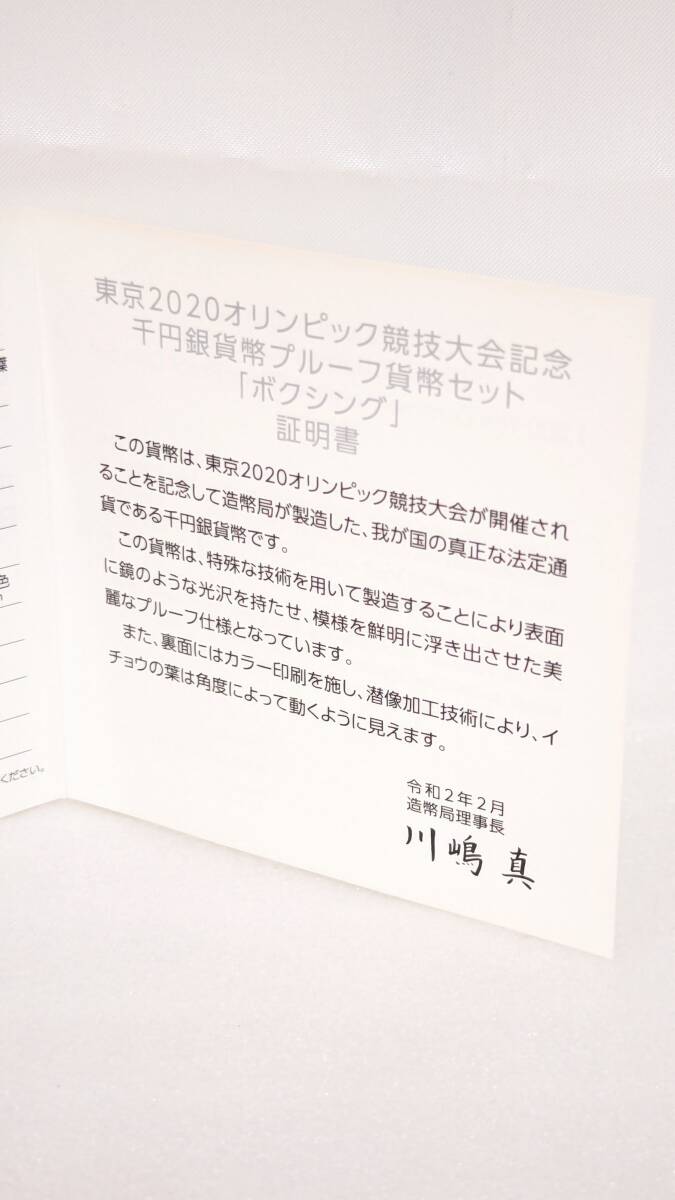 東京2020オリンピック競技大会記念
千円銀貨幣プルーフ貨幣セット
「ボクシング」
証明書
この貨幣は、東京2020オリンピック競技大会が開催され
ることを記念して造幣局が製造した、我が国の真正な法定通
貨である千円銀貨幣です。
この貨幣は、特殊な技術を用いて製造することにより表面
に鏡のような光沢を持たせ、模様を鮮明に浮き出させた美
麗なプルーフ仕様となっています。
また、裏面にはカラー印刷を施し、潜像加工技術により、イ
チョウの葉は角度によって動くように見えます。
令和2年2月
造幣局理事長
川嶋 真
色
ください。